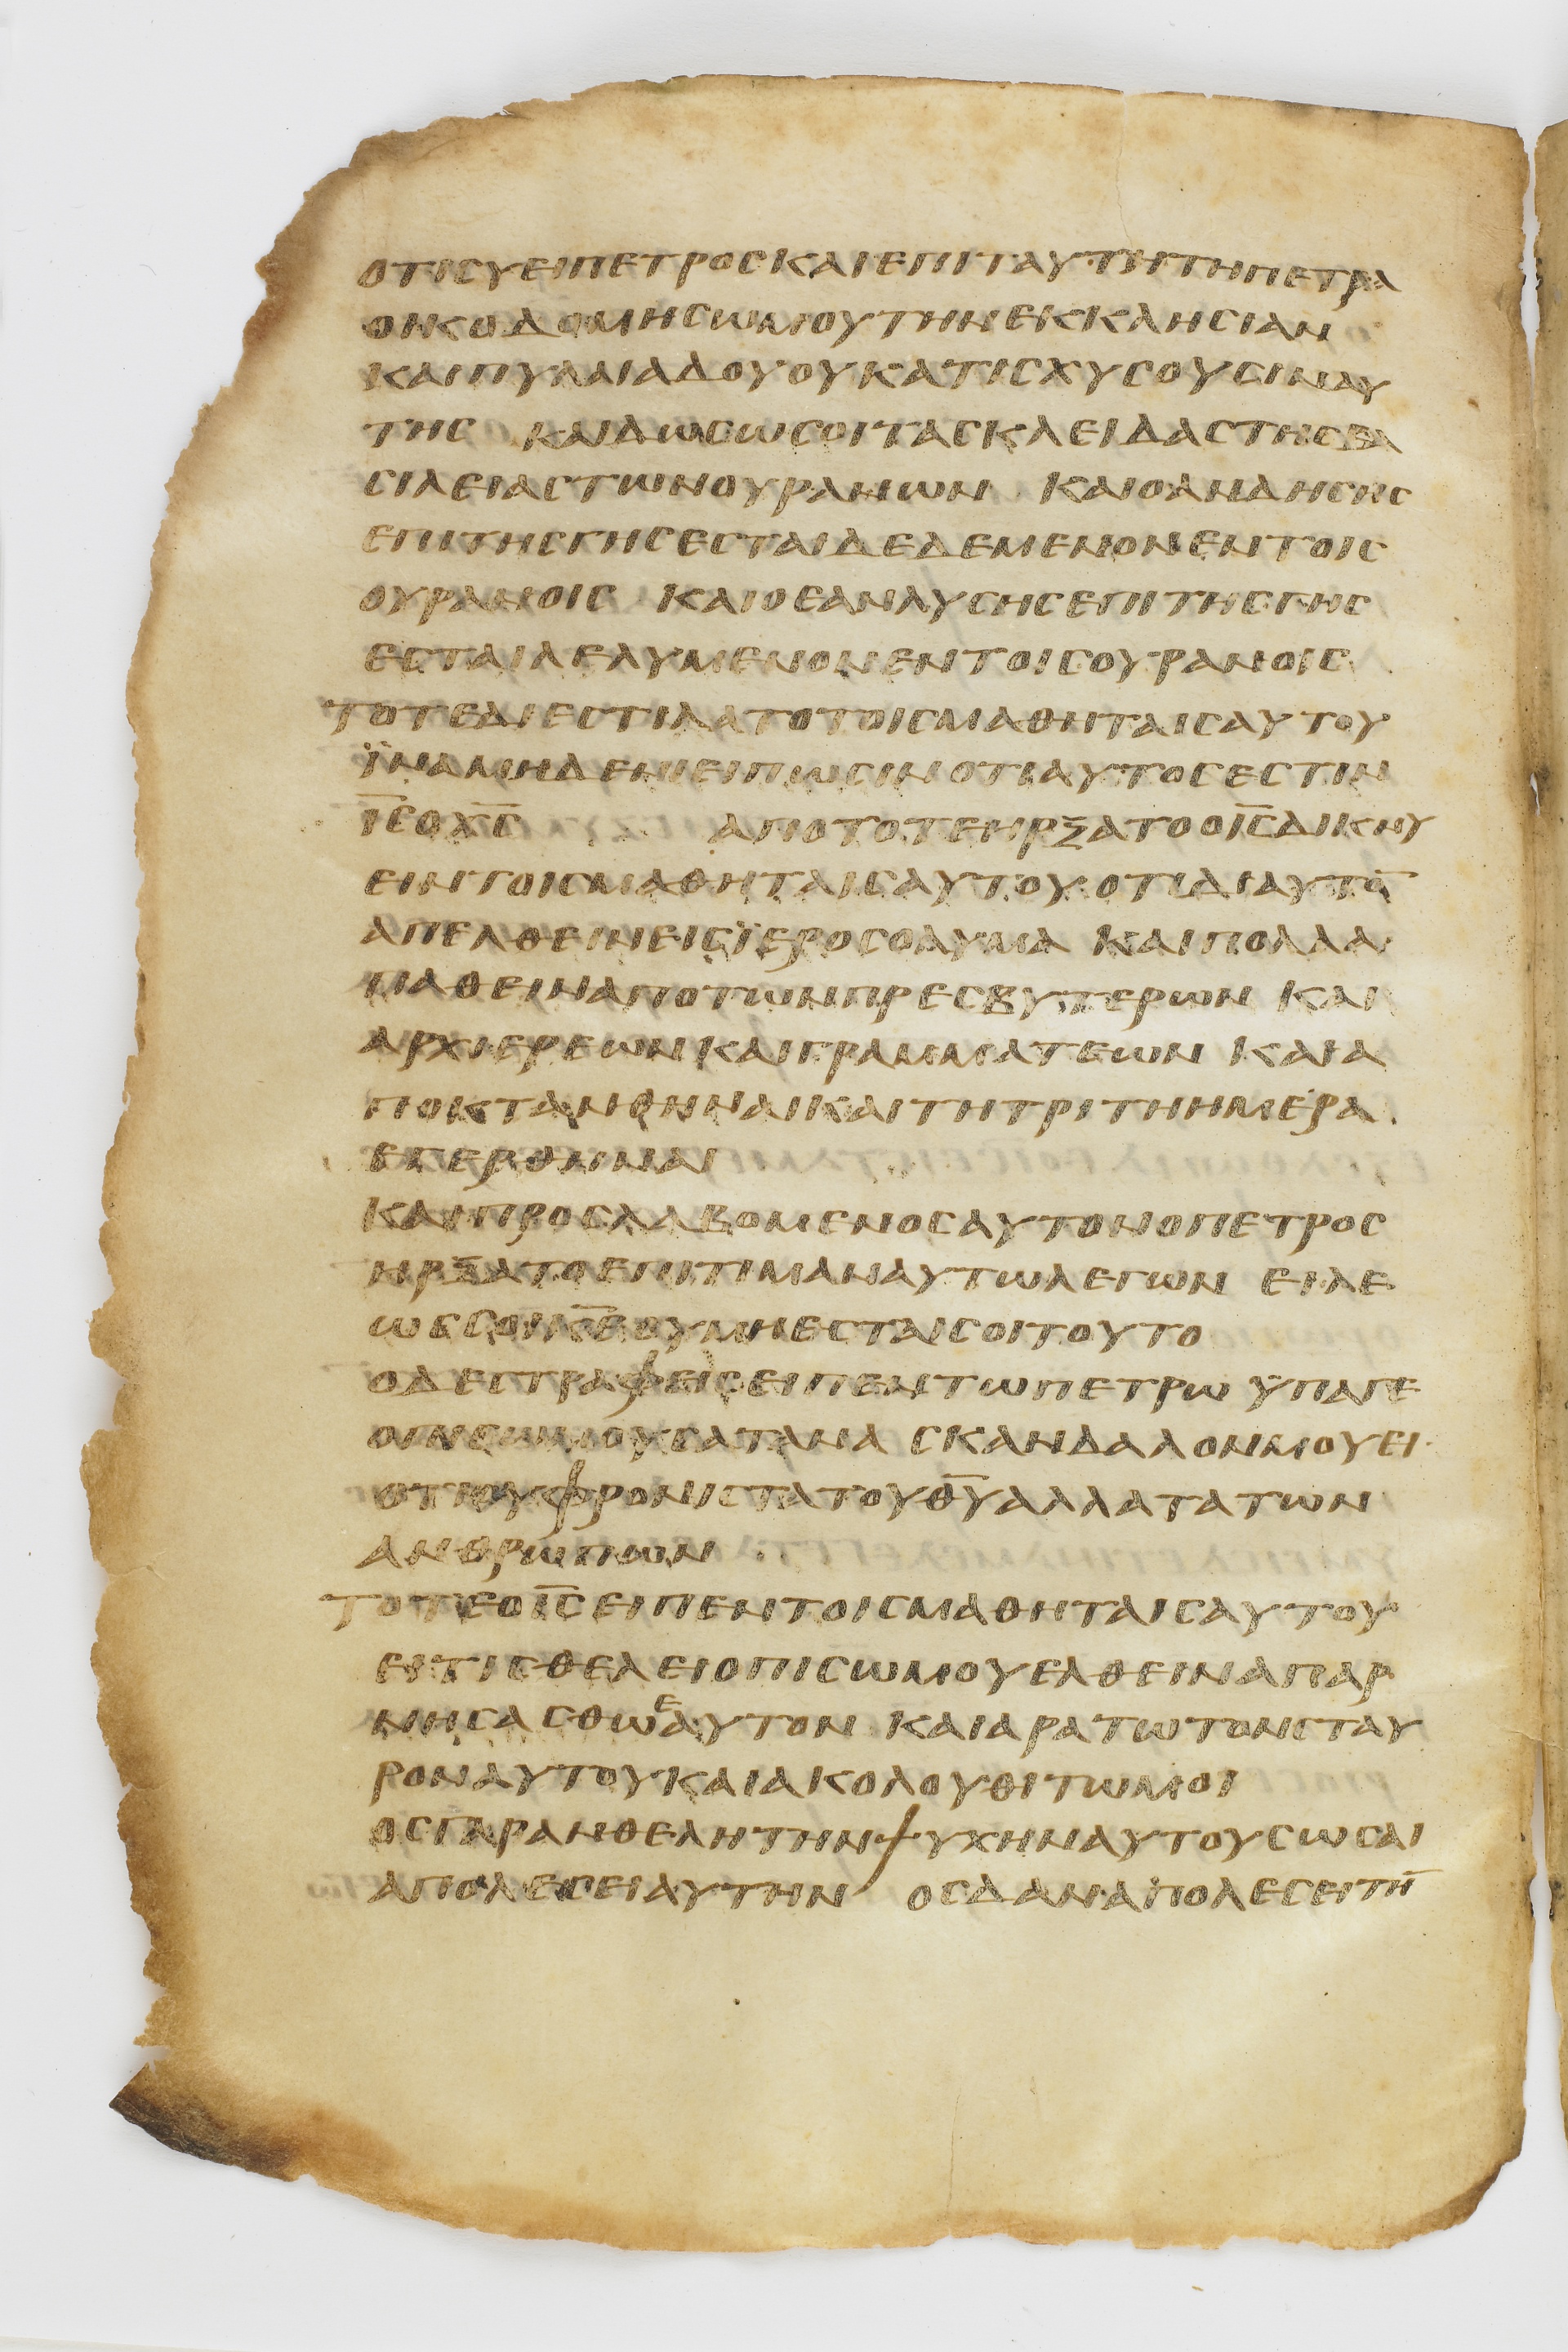 οτιϲυειπετροϲκαιεπιταυτητηπετρα
οικοδομηϲωμουτηνεκκληϲιαν
καιπυλαιαδουουκατιϲχυϲουϲιναυ
τηϲ καιδωϲωϲοιταϲκλειδαϲτηϲβα
ϲιλειαϲτωνουρανων καιοανδηϲηϲ
επιτηϲγηϲεϲταιδεδεμενονεντοιϲ
ουρανοιϲ καιοεανλυϲηϲεπιτηϲγηϲ
εϲταιλελυμενονεντοιϲουρανοιϲ
τοτεδιεϲτιλατοτοιϲμαθηταιϲαυτου
ϊναμηδενιειπωϲινοτιαυτοϲεϲτιν
ι̅ϲ̅οχ̅ϲ̅ αποτοτεηρξατοοι̅ϲ̅δικνυ
ειντοιϲμαθηταιϲαυτουοτιδιαυτο̅
απελθεινειϲϊεροϲολυμα καιπολλα
παθειναποτωνπρεϲβυτερων και
αρχιερεωνκαιγραμματεων καια
ποκτανθηναικαιτητριτηημερα
εγερθηναι
καιπροϲλαβομενοϲαυτονοπετροϲ
ηρξατοεπιτιμαναυτωλεγων ειλε
ωϲϲοικ̅ε̅ουμηεϲταιϲοιτουτο
οδεϲτραφειϲειπεντωπετρωϋπαγε
οπιϲωμουϲατανα ϲκανδαλονμουει
οτιουφρονιϲτατουθ̅υ̅αλλατατων
ανθρωπων
τοτεοι̅ϲ̅ειπεντοιϲμαθηταιϲαυτου
ειτιϲθελειοπιϲωμουελθειναπαρ
νηϲαϲθωεαυτον καιαρατωτονϲταυ
ροναυτουκαιακολουθιτωμοι
οϲγαρανθελητηνψυχηναυτουϲωϲαι
απολεϲειαυτην οϲδαναπολεϲειτη̅